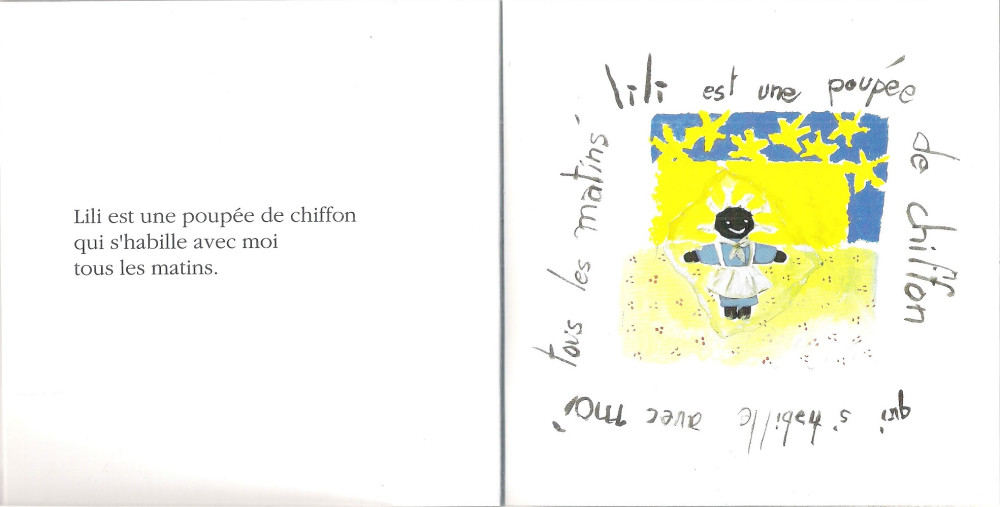 Lili est une poupée de chiffon
qui s'habille avec moi
tous les matins.
lili est une poupée
de chiffon
qui s'habille avec moi
tous les matins